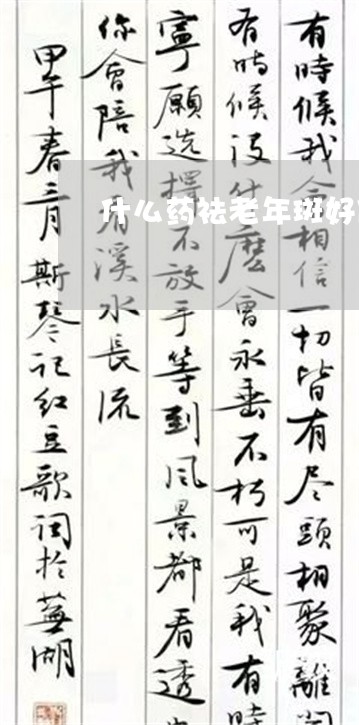 什么药祛老年斑好
有時候我会相信一切皆有尽頭相聚離
有時候没什麽會永垂不朽可是我有時
寧願选擇不放手等到风景都看透
你会陪我看溪水長流
甲午春三月斯琴记红豆歌词於蕪湖